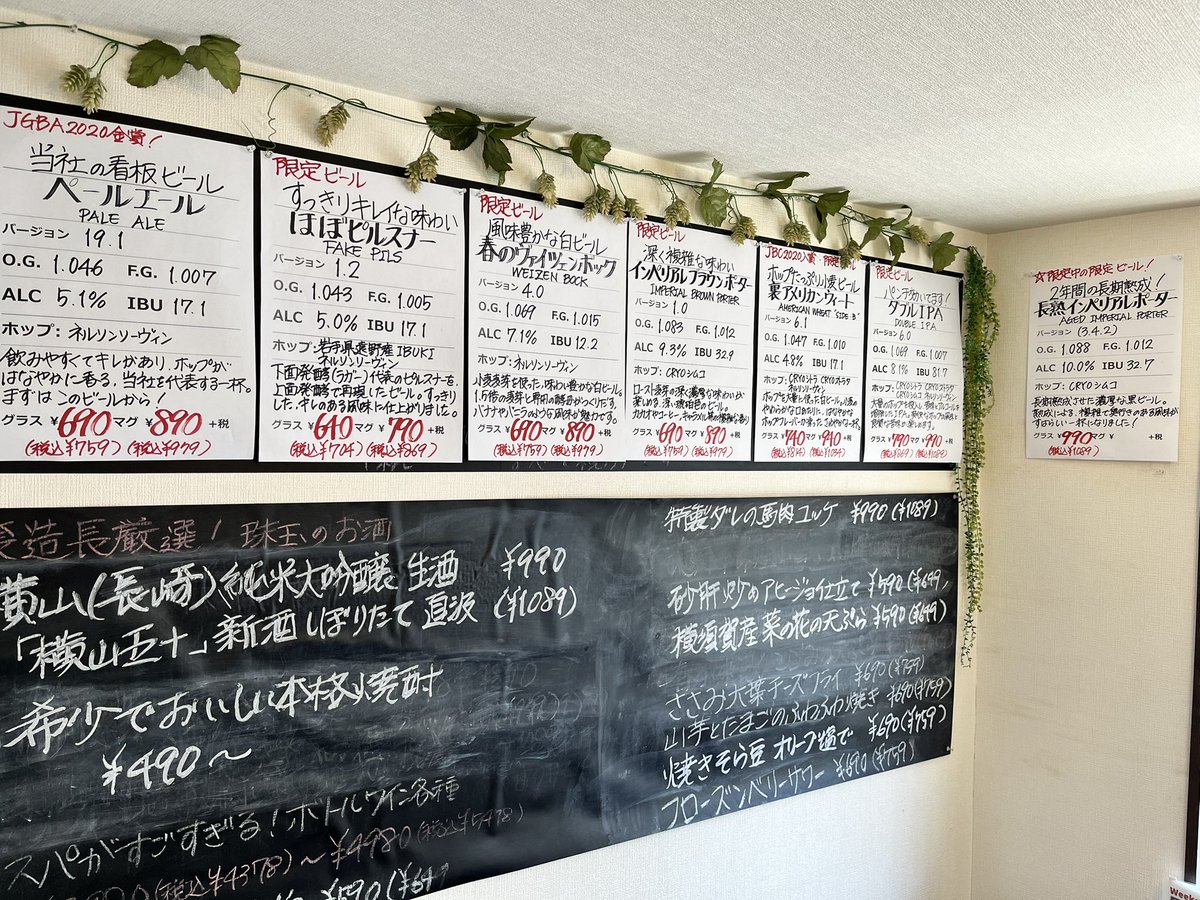 JGBA2020金賞!
当社の看板ビール
ペールエール
PALE ALE
バージョン 19.1
O.G. 1.046 F.G. 1.007
ALC 5.1% IBU 17.1
ホップ: ネルソンソーヴィン
飲みやすくてキレがあり、ホップが
はなやかに香る、当社を代表する一杯。
まずは このビールから!
グラス ¥690 マグ ¥890 +税
(税込¥759) (税込¥979)
限定ビール
すっきりキレイな味わい
ほぼピルスナー
FAKE PILS
バージョン 1.2
O.G. 1.043 F.G. 1.005
ALC 5.0% IBU 17.1
ホップ: 岩手県遠野産IBUKI
ネルソンソーヴィン
下面発酵(ラガー)代表のピルスナーを、
上面発酵で再現したビール。すっきり
した、キレのある風味に仕上がりました。
グラス ¥640 マグ ¥790 +税
(税込¥704) (税込¥869)
限定ビール
風味豊かな白ビール
春のヴァイツェンボック
WEIZEN BOCK
バージョン 4.0
O.G. 1.069 F.G. 1.015
ALC 7.1% IBU 12.2
ホップ: ネルソンソーヴィン
小麦麦芽を使った、味わい豊かな白ビール。
1.5倍の麦芽と専用の酵母でじっくりと。
バナナやバニラのような風味が魅力です。
グラス ¥690 マグ ¥890 +税
(税込¥759) (税込¥979)
限定ビール
深く複雑な味わい
インペリアルブラウンポーター
IMPERIAL BROWN PORTER
バージョン 1.0
O.G. 1.083 F.G. 1.012
ALC 9.3% IBU 32.9
ホップ: CRYOシムコ
グラス ¥690 マグ ¥890 +税
(税込¥759) (税込¥979)
JBC2020入賞・限定ビール
ホップたっぷり小麦ビール
裏アメリカンウィート
AMERICAN WHEAT "SIDE B"
バージョン 6.1
O.G. 1.047 F.G. 1.010
ALC 4.8% IBU 17.1
ホップ: CRYOシトラ CRYOエクラザ
ネルソンソーヴィン
グラス ¥740 マグ ¥940 +税
(税込¥814) (税込¥1034)
限定ビール
パンチ効いてます!
ダブルIPA
DOUBLE IPA
バージョン 6.0
O.G. 1.069 F.G. 1.007
ALC 8.1% IBU 81.7
グラス ¥790 マグ ¥990 +税
(税込¥869) (税込¥1089)
☆限定中の限定ビール!
2年間の長期熟成!
長熟インペリアルポーター
AGED IMPERIAL PORTER
バージョン (3.4.2)
O.G. 1.088 F.G. 1.012
ALC 10.0% IBU 32.7
ホップ: CRYOシムコ
長期熟成させた濃厚な黒ビール。
熟成による、複雑で奥行きのある風味が
すばらしい一杯になりました!
グラス ¥990 マグ ¥ +税
(税込¥1089)
造長厳選! 珠玉のお酒
横山(長崎)純米大吟醸 生酒 ¥990
「横山五十」新酒しぼりたて 直汲 (¥1089)
希少でおいしい本格焼酎
¥490〜
スパがすごすぎる!ボトルワイン各種
(税込¥4378)〜¥4980(税込¥5478)
特製ダレの馬肉ユッケ ¥990 (¥1089)
砂肝炒めアヒージョ仕立て ¥590 (¥649)
横須賀産菜の花の天ぷら ¥590 (¥649)
ささみ大葉チーズフライ ¥690 (¥759)
山芋とたまごのふわふわ焼き ¥690 (¥759)
焼きそら豆 オリーブ塩で ¥690 (¥759)
フローズンベリーサワー ¥690 (¥759)
Week